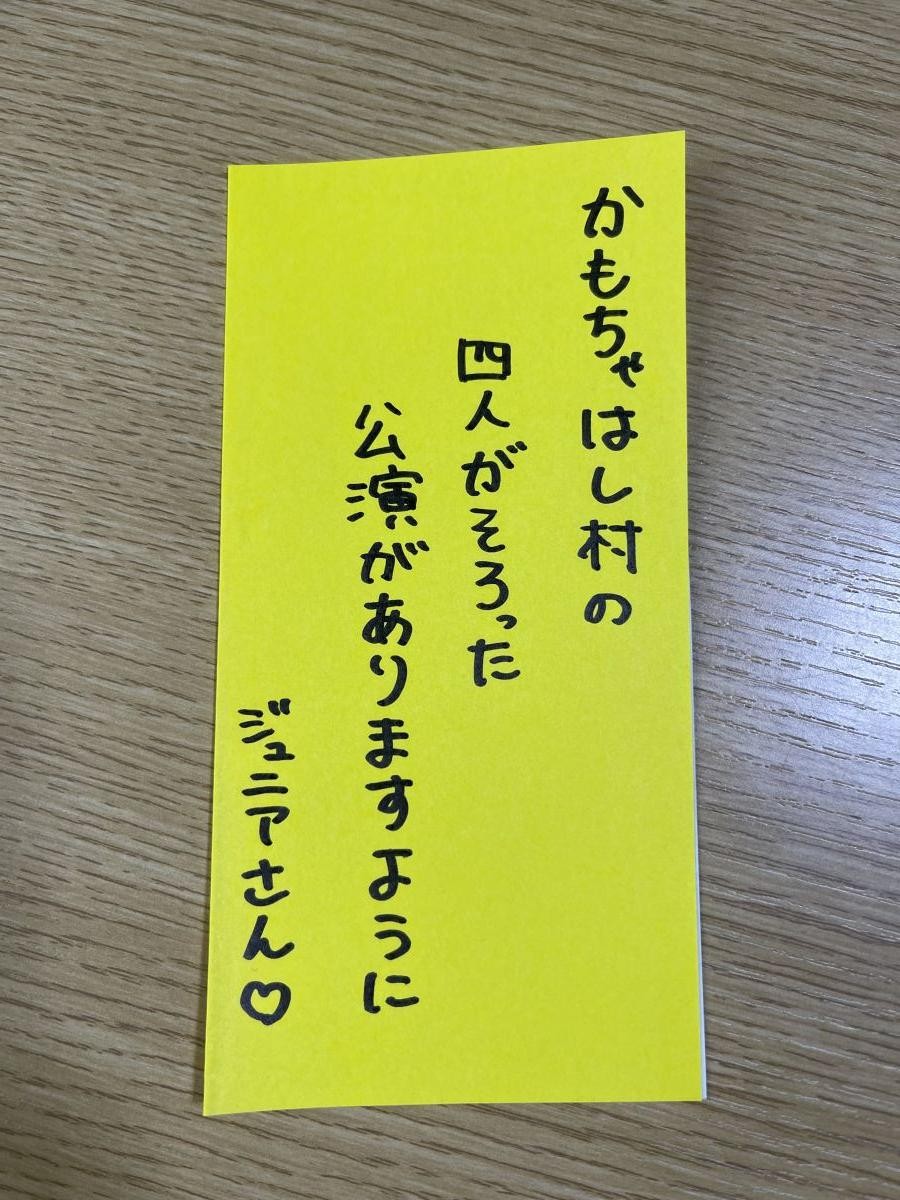 かもちゃはし村の
四人がそろった
公演がありますように
ジュニアさん♡